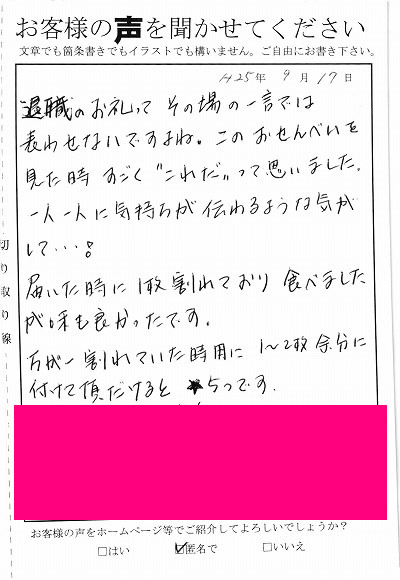 お客様の声を聞かせてください
文章でも箇条書きでもイラストでも構いません。ご自由にお書き下さい。
H25年 9月17日
退職のお礼って その場の一言では
表わせないですよね。このおせんべいを
見た時 すごく"これだ"って思いました。
一人一人に気持ちが伝わるような気が
して…!
届いた時に1枚割れており 食べました
が味も良かったです。
万が一割れていた時用に 1〜2枚余分に
付けて頂だけると ★5つです.
切り取り線
お客様の声をホームページ等でご紹介してよろしいでしょうか？
□はい ☑匿名で □いいえ